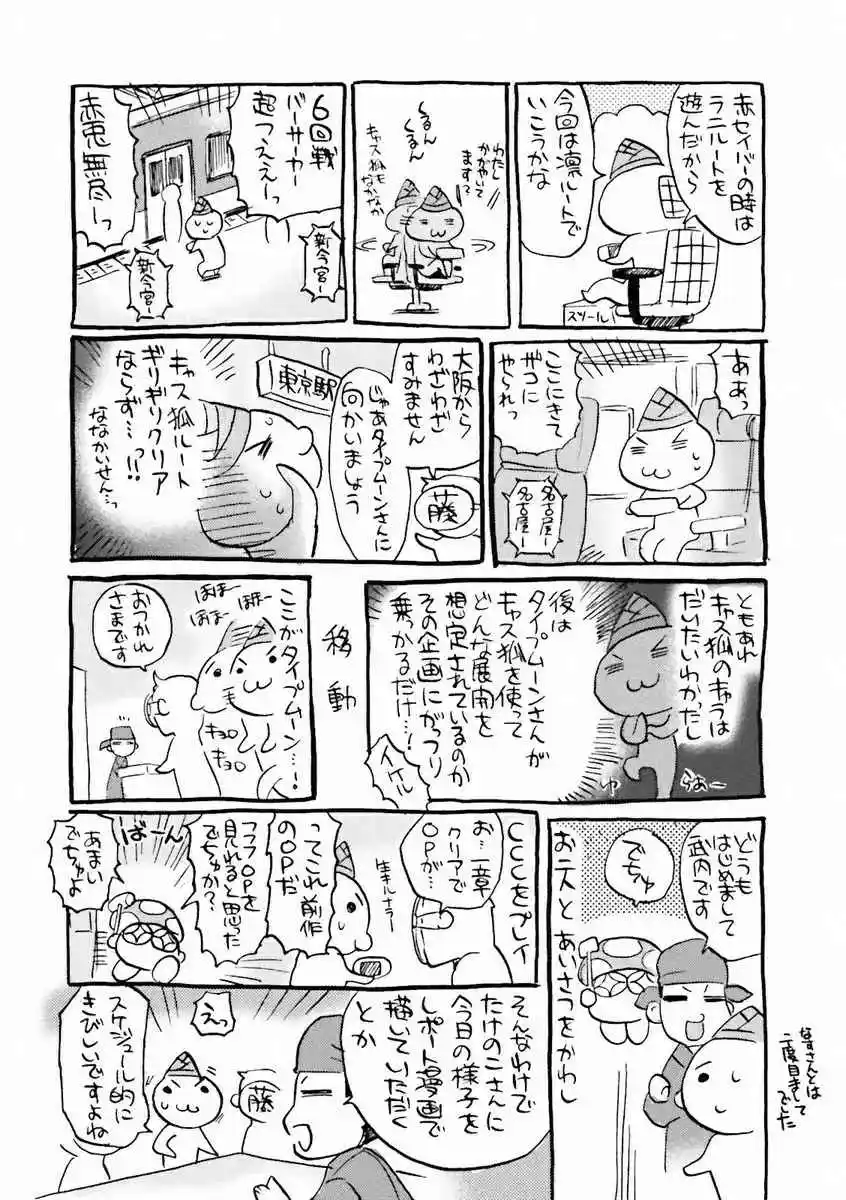 赤セイバーの時は
ラニルートを
遊んだから
今回は凛ルートで
いこうかな
スツール
わたし
かがやいて
ます？
くるん
くるん
キャス狐も
なかなか
6回戦
バーサーカー
超つええーっ
赤兎無尽ーっ
新今宮ー
新今宮ー
ああっ
ここにきて
ザコに
やられっ
名古屋ー
名古屋ー
大阪から
わざわざ
すみません
じゃあタイプムーンさんに
向かいましょう
藤
東京駅
キャス狐ルート
ギリギリクリア
ならず…!?
ななかいせん…っ
ともあれ
キャス狐のキャラは
だいたいわかったし
後は
タイプムーンさんが
キャス狐を使って
どんな展開を
想定されているのか
その企画にがっつり
乗っかるだけ…!
イケル
ゆ
らぁー
移動
ここがタイプムーン…!
ほほー
ほほー
ほほー
キョロ
キョロ
おつかれ
さまです
どうも
はじめまして
武内です
でちゅ
お二人とあいさつをかわし
なすさんとは
二度目まして
でした
CCCをプレイ
お、一章
クリアで
OPが…
生キルナラー
ってこれ前作
のOPだ
ばーん
フフOPを
見れると思った
でちゅか?
あまい
でちゅよ
そんなわけで
たけのこさんに
今日の様子を
レポート漫画で
描いていただく
とか
えっ
藤
スケジュール的に
きびしいですよね